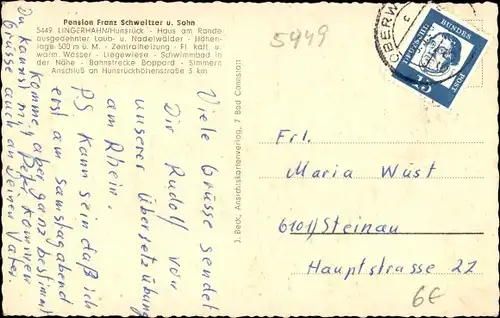 Pension Franz Schweitzer u. Sohn
5449 LINGERHAHN/Hunsrück · Haus am Rande
ausgedehnter Laub- u. Nadelwälder - Höhen-
lage 500 m ü. M. - Zentralheizung - Fl. kalt u.
warm. Wasser - Liegewiese - Schwimmbad in
der Nähe - Bahnstrecke Boppard - Simmern
Anschluß an Hunsrückhöhenstraße 5 km
5449
Viele Grüsse sendet
Dir Rudolf von
unserer Übersetzübung
am Rhein.
PS. Kann sein daß ich
erst am Samstagabend
komme, aber ganz bestimmt
Du kannst mit Peter kommen
Grüsse auch an Deinen Vater
J. Beck, Ansichtskartenverlag, 7 Bad Cannstatt
OBERW
DEUTSCHE
BUNDES
POST
15
Frl.
Maria Wüst
6101/Steinau
Hauptstrasse 22
6€